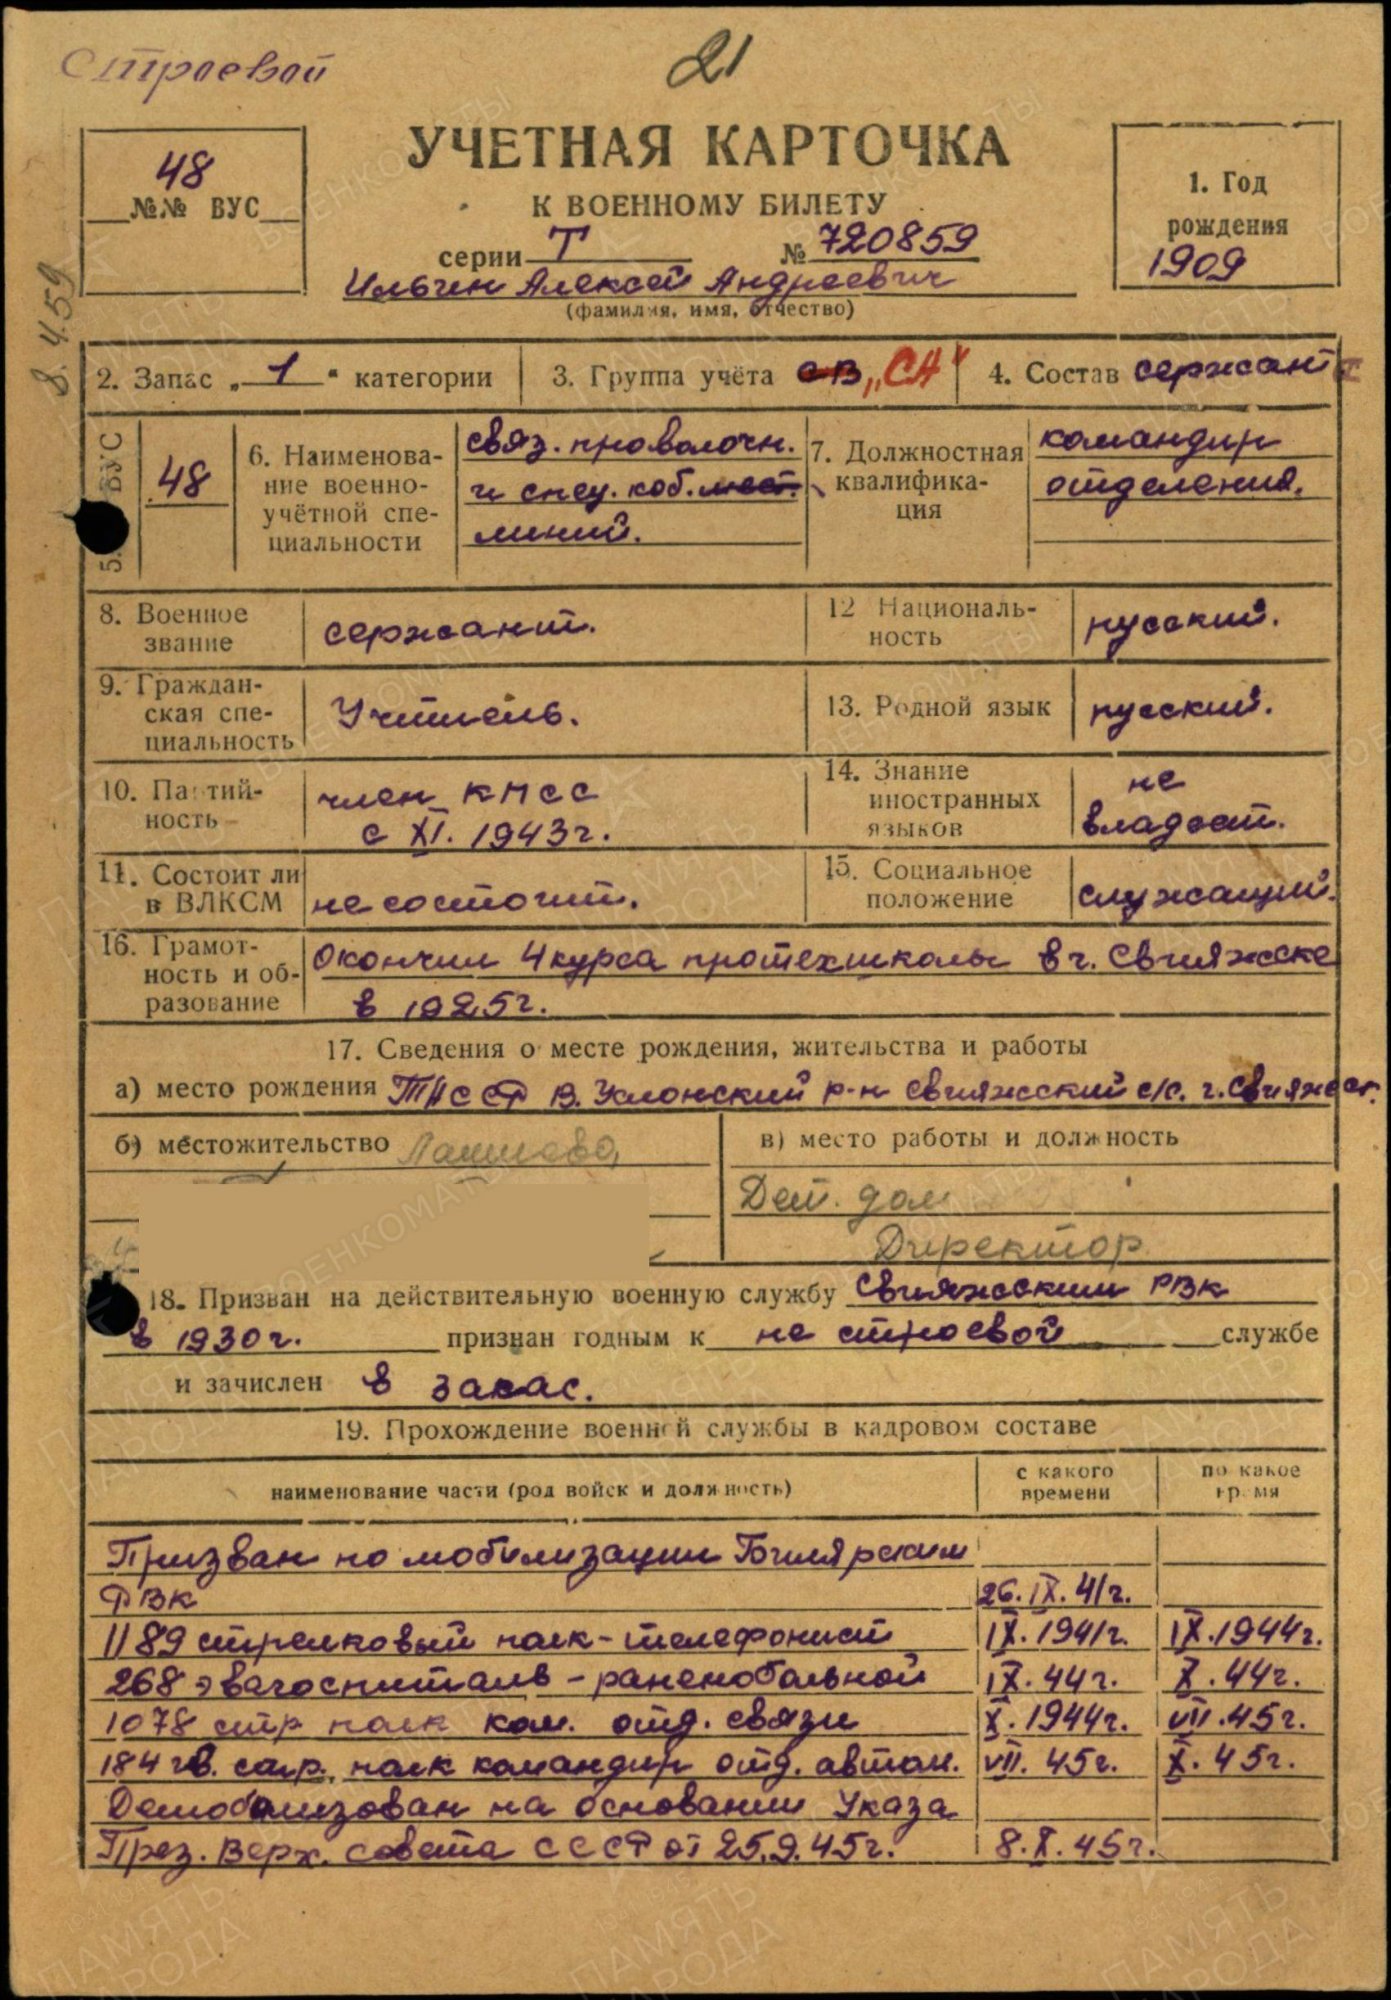 Строевой
21
48
№№ ВУС
УЧЕТНАЯ КАРТОЧКА
К ВОЕННОМУ БИЛЕТУ
серии Т № 720859
Ильин Алексей Андреевич
(фамилия, имя, отчество)
1. Год
рождения
1909
8.4.59
2. Запас „1“ категории
3. Группа учёта СВ „СА“
4. Состав сержант
5. ВУС
48
6. Наименова-
ние военно-
учётной спе-
циальности
связ. проволочн.
и спец. каб. мест.
линий.
7. Должностная
квалифика-
ция
командир
отделения.
8. Военное
звание
сержант.
12 Националь-
ность
русский.
9. Граждан-
ская спе-
циальность
Учитель.
13. Родной язык
русский.
10. Партий-
ность
член КПСС
с XI. 1943г.
14. Знание
иностранных
языков
не
владеет.
11. Состоит ли
в ВЛКСМ
не состоит.
15. Социальное
положение
служащий.
16. Грамот-
ность и об-
разование
Окончил 4 курса протехшколы в г. Свияжске
в 1925г.
17. Сведения о месте рождения, жительства и работы
а) место рождения ТАССР В. Услонский р-н Свияжский с/с. г. Свияжск.
б) местожительство Лаишево,
в) место работы и должность
Дет. дом
Директор
18. Призван на действительную военную службу Свияжским РВК
в 1930г. признан годным к не строевой службе
и зачислен в запас.
19. Прохождение военной службы в кадровом составе
наименование части (род войск и должность)
с какого
времени
по какое
время
Призван по мобилизации Госиярским
РВК 26.IX.41г.
1189 стрелковый полк - телефонист IX.1941г. IX.1944г.
268 эвагоспиталь - раненобольной IX.44г. X.44г.
1078 стр полк ком. отд. связи X.1944г. VII.45г.
184 гв. стр. полк командир отд. автом. VII.45г. X.45г.
Демобилизован на основании Указа
През. Верх. Совета СССР от 25.9.45г. 8.X.45г.